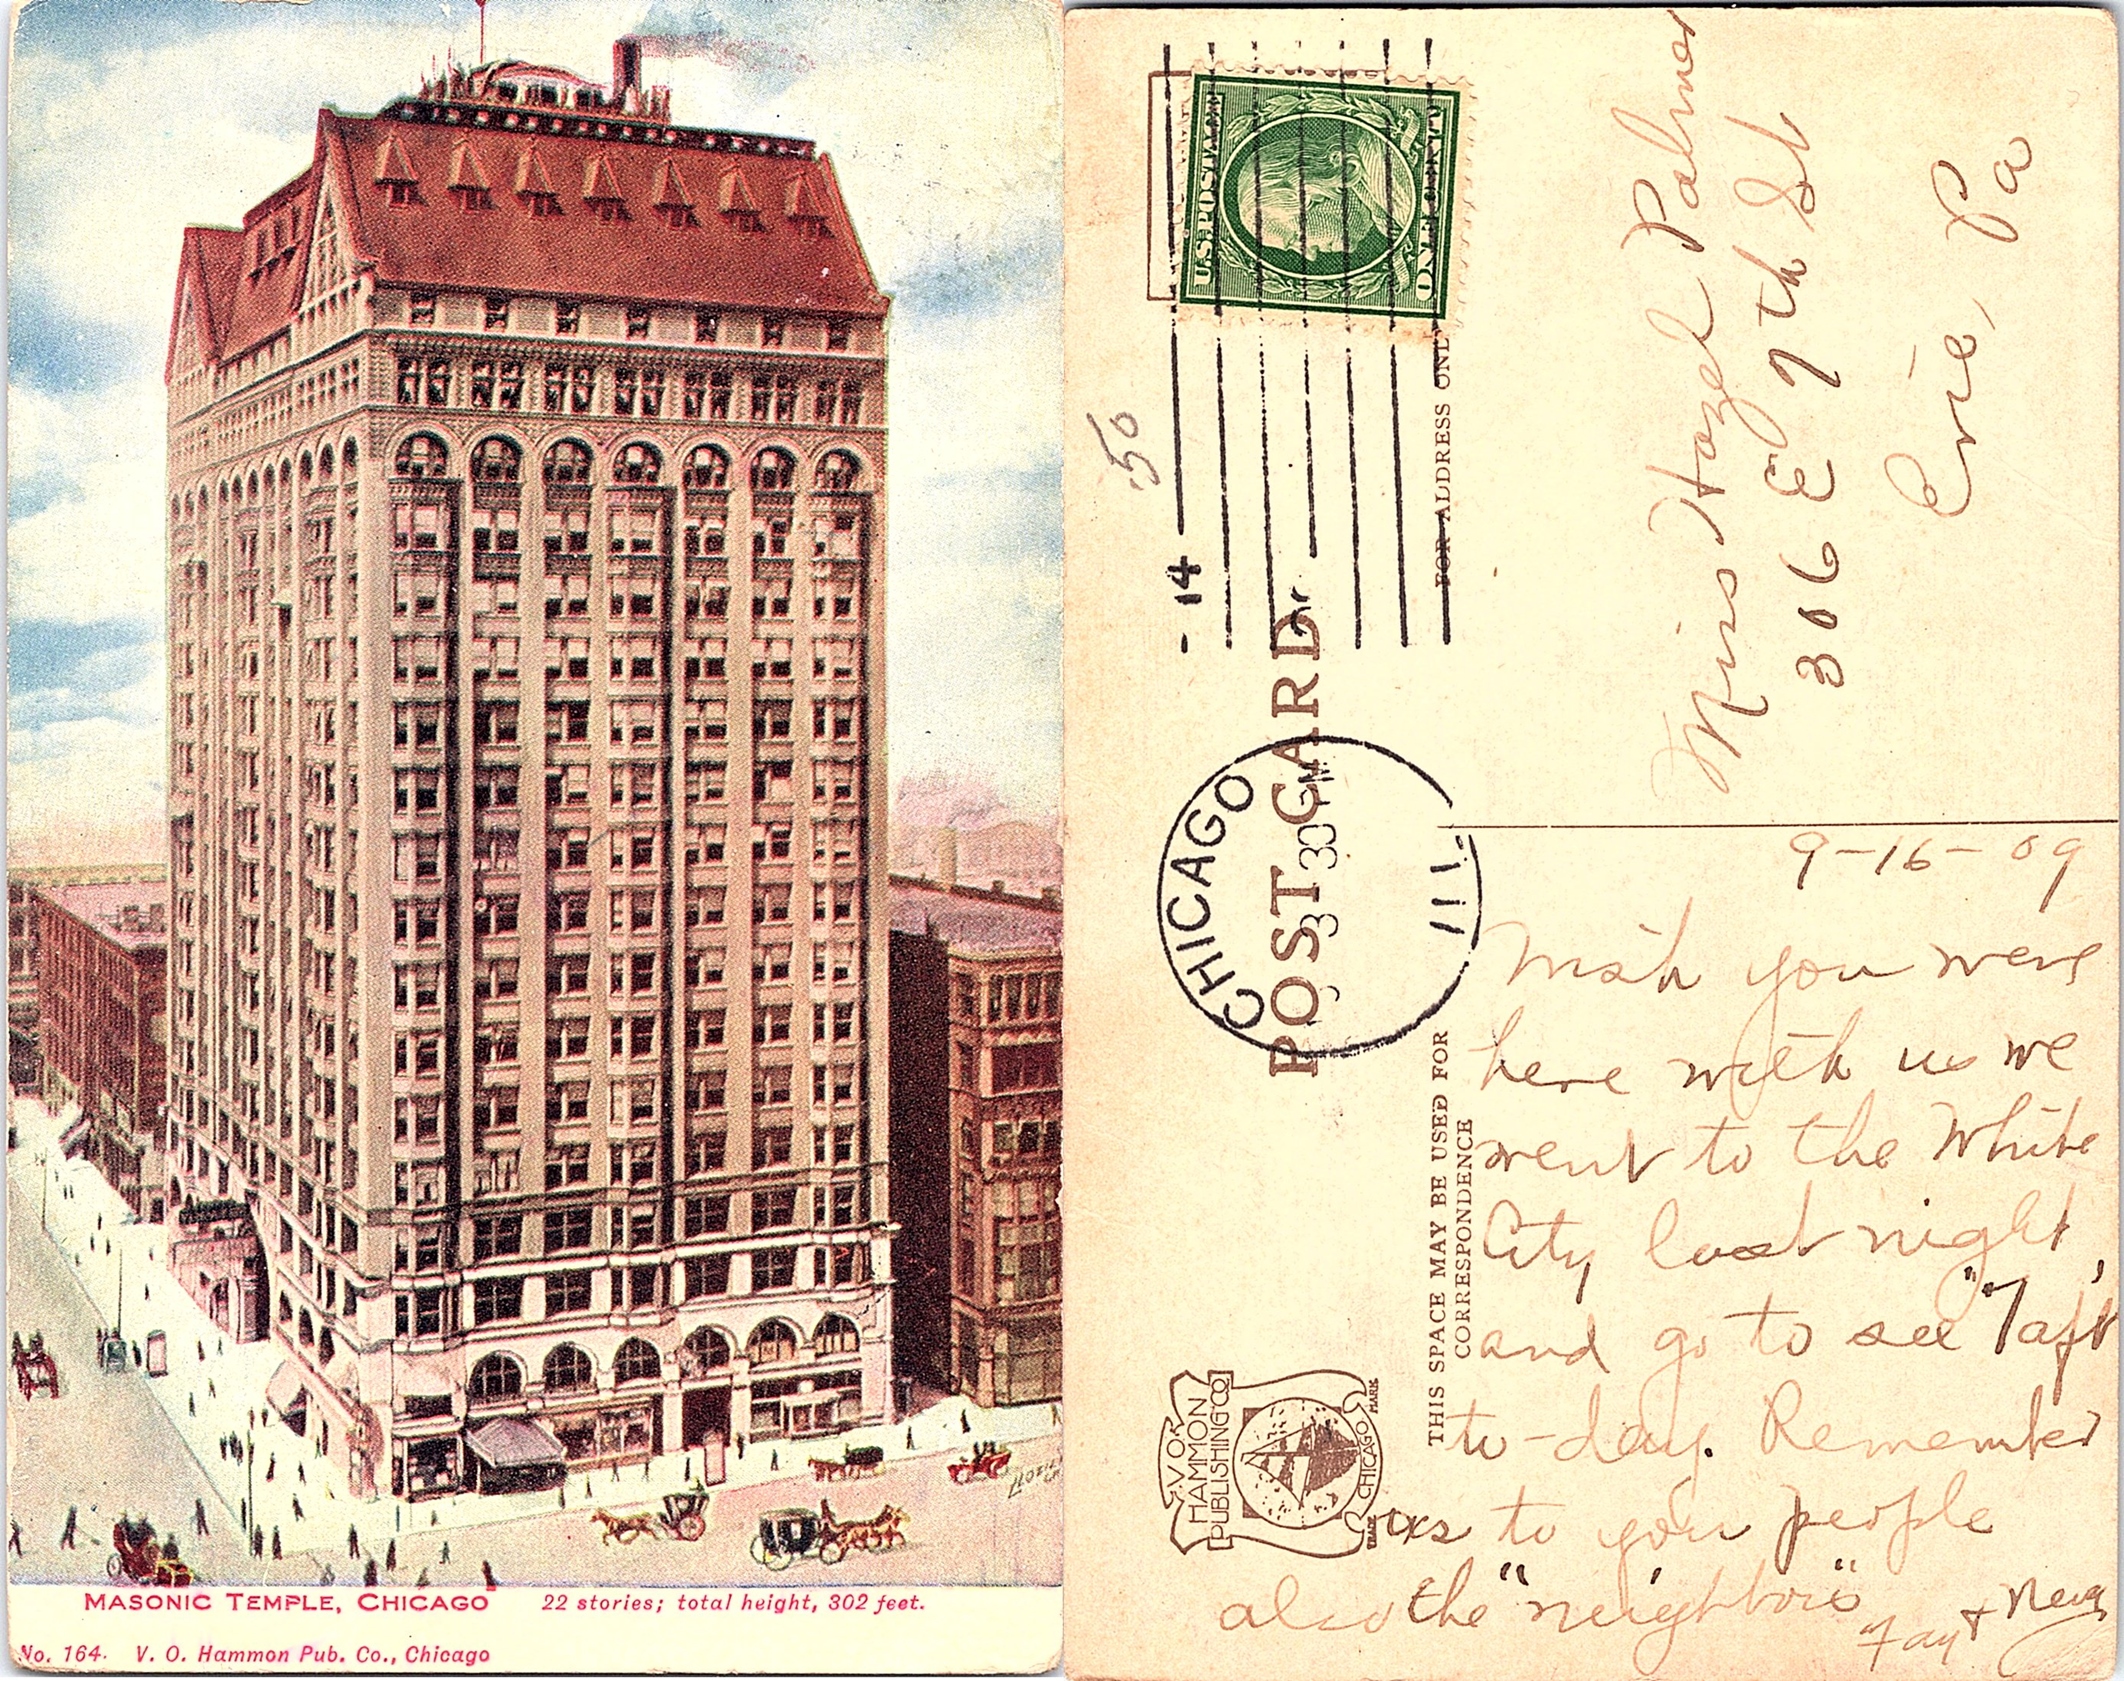 MASONIC TEMPLE, CHICAGO 22 stories; total height, 302 feet.
No. 164. V. O. Hammon Pub. Co., Chicago
U.S. POSTAGE
ONE CENT
.50
- 14
CHICAGO
ILL.
3 30 PM
POST CARD
FOR ADDRESS ONLY
THIS SPACE MAY BE USED FOR
CORRESPONDENCE
V.O.
HAMMON
PUBLISHING CO
CHICAGO
TRADE MARK
Miss Hazel Palmer
306 E 7th St
Erie, Pa
9-16-09
Wish you were
here with us we
went to the White
City last night,
and go to see "Taft"
to-day. Remember
us to you people
also the "neighbors"
Fay +